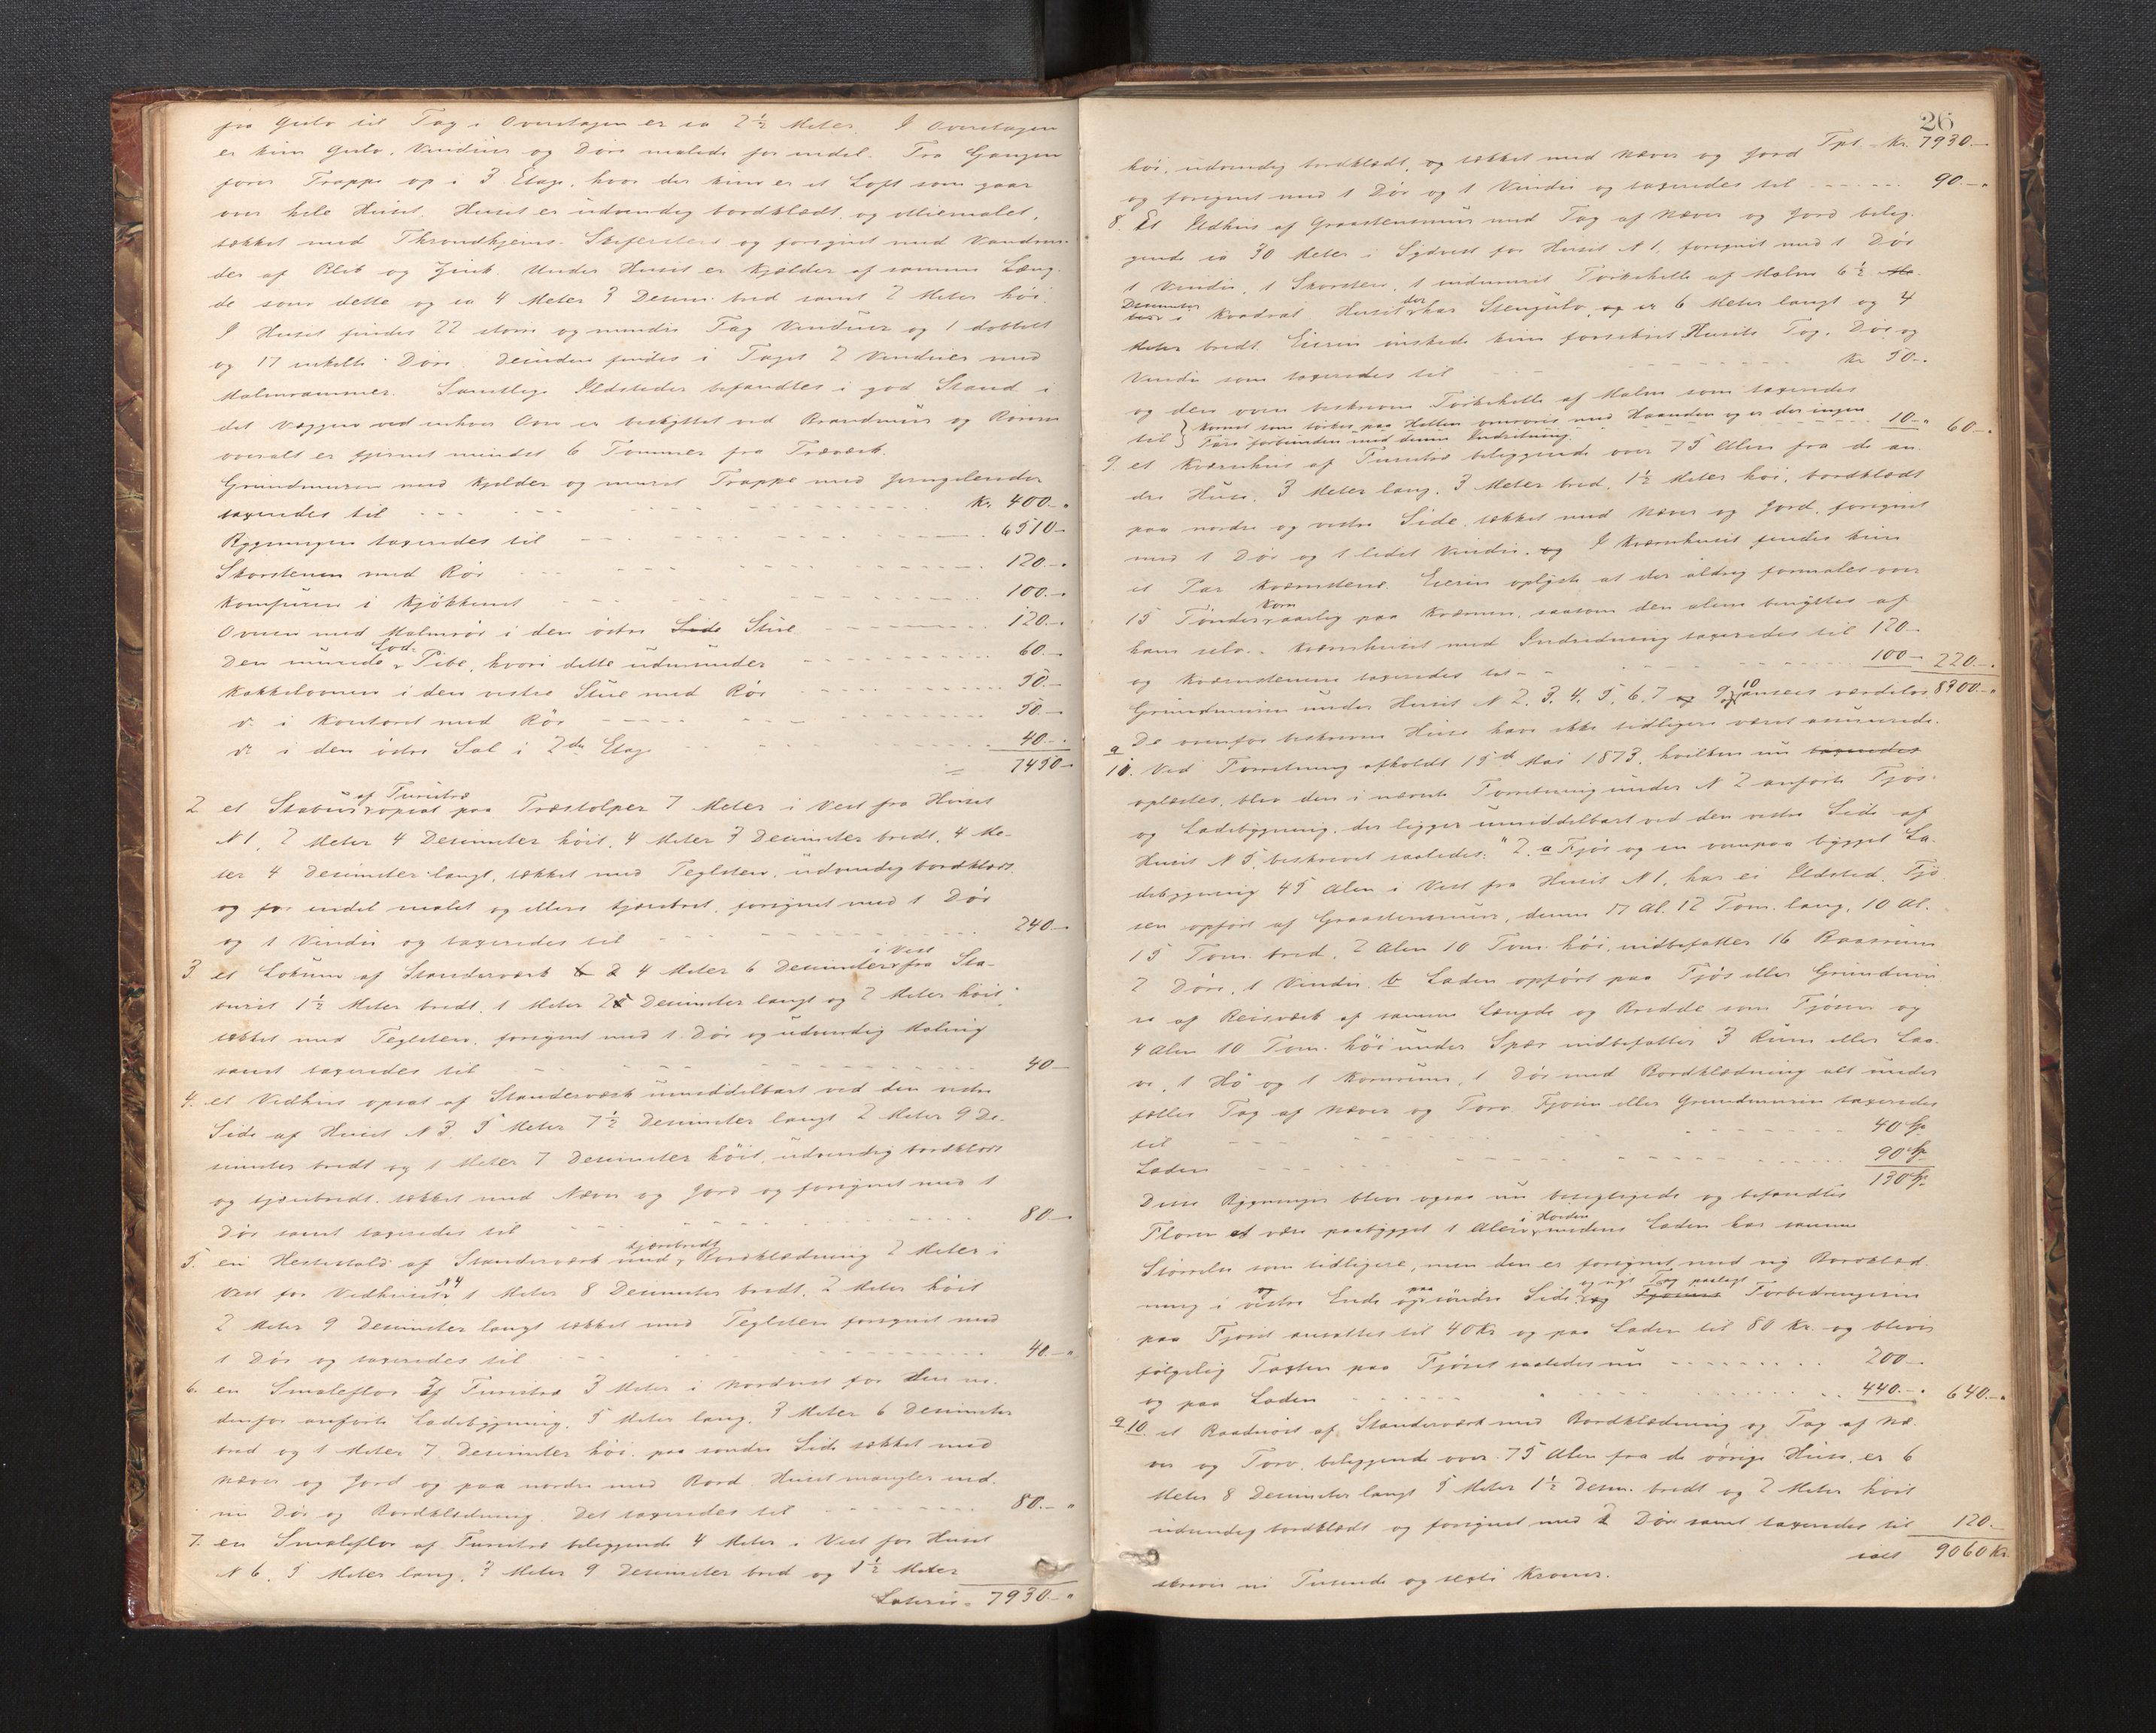 fra Gulv til Tag i Overetagen er ca 2 1/2 Meter. I Overetagen
er kun Gulv, Vinduer og Døre malede for endel. Fra Gangen
fører Trappe op i 3 Etage, hvor der kun er et Loft som gaar
over hele Huset. Huset er udvendig bordklædt og oliemalet,
tækket med Throndhjems Skifersten og forsynet med Vandren-
der af Blik og Zink. Under Huset er Kjælder af samme Læng-
de som dette og ca 4 Meter 3 Desim. bred samt 2 Meter høi.
I Huset findes 22 store og mindre Fag Vinduer og 1 dobbelt
og 17 enkelte Døre. Desuden findes i Taget 2 Vinduer med
Malmrammer. Samtlige Ildsteder befandtes i god Stand i
det Væggen ved enhver Ovn er beskyttet ved Brandmur og Rørene
overalt er fjernet mindst 6 Tommer fra Træværk.
Grundmuren med Kjelder og muret Trappe med Jerngelender
taxeredes til Kr. 400.-
Bygningen taxeredes til 6510-
Skorstenen med Rør 120.-
Komfuren i Kjøkkenet 100.-
Ovnen med Malmrør i den østre Side Stue 120.-
Den murede Lod- Pibe, hvori dette udmunder 60.-
Kakkelovnen i den vestre Stue med Rør 50.-
do i Kontoret med Rør 50.-
do i den østre Sal i 2den Etage 40.-
= 7450-
2 et Stabur af Furutræ opsat paa Træstolper 7 Meter i Vest fra Huset
N 1, 2 Meter 4 Desimeter høit, 4 Meter 3 Desimeter bredt, 4 Me-
ter 4 Desimeter langt, tækket med Teglsten, udvendig bordklædt
og for endel malet og ellers tjærebret, forsynet med 1 Dør
og 1 Vindu og taxeredes til 240-
3. et Lokum af Standerværk 6 2 4 Meter 6 Desimeter i Vest fra Sta-
buret 1 1/2 Meter bredt, 1 Meter 2 Desimeter langt og 2 Meter høit,
tækket med Teglsten, forsynet med 1 Dør og udvendig Maling
samt taxeredes til 40-
4. et Vedhus opsat af Standerværk umiddelbart ved den vestre
Side af Huset N 3. 5 Meter 7 1/2 Desimeter langt 2 Meter 9 De-
simeter bredt og 1 Meter 7 Desimeter høit, udvendig bordklædt
og tjærebredt, tækket med Næver og Jord og forsynet med 1
Dør samt taxeredes til 80-
5. en Hestestald af Standerværk med tjærebredt Bordklædning 2 Meter i
Vest for Vedhuset N 4 1 Meter 8 Desimeter bredt, 2 Meter høit
2 Meter 9 Desimeter langt tækket med Teglsten forsynet med
1 Dør og taxeredes til 40.-
6. en Smaleflor af Furutræ 3 Meter i Nordvest for den ne-
denfor anførte Ladebygning, 5 Meter lang, 3 Meter 6 Desimeter
bred og 1 Meter 7 Desimeter høi, paa søndre Side tækket med
Næver og Jord og paa nordre med Bord. Huset mangler end-
nu Dør og Bordklædning. Det taxeredes til 80.-
7. en Smaleflor af Furutræ beliggende 4 Meter i Vest for Huset
N 6. 5 Meter lang, 3 Meter 9 Desimeter bred og 1 1/2 Meter
Lateris 7930.-
26
Tpt. Kr. 7930.-
høi, udvendig bordklædt, og tækket med Næver og Jord
og forsynet med 1 Dør og 1 Vindu og taxeredes til 90.-
8. Et Ildhus af Graastensmur med Tag af Næver og Jord belig-
gende ca 30 Meter i Sydvest for Huset N 1, forsynet med 1 Dør
1 Vindu, 1 Skorsten, 1 indmuret Tørkehelle af Malm 6 1/2 Me-
Desimeter ter i Kvadrat Huset der har Stengulv, og er 6 Meter langt og 4
Meter bredt. Eieren ønskede kun forsikret Husets Tag, Dør og
Vindu som taxeredes til Kr 50.-
og den oven beskrevne Tørkehelle af Malm som taxeredes
til } Kornet som tørkes paa Hellen omrøres med Haanden og er der ingen 10-" 60-
Fare forbunden med denne Indretning
9. et Kværnhus af Furutræ beliggende over 75 Alen fra de an-
dre Huse. 3 Meter lang, 3 Meter bred, 1 1/2 Meter høi, bordklædt
paa nordre og vestre Side, tækket med Næver og Jord, forsynet
med 1 Dør og 1 lidet Vindu. og I Kværnhuset findes kun
et Par Kværnstene. Eieren oplyste at der aldrig formales over
15 Tønder Korn aarlig paa Kværnen, saasom den alene benyttes af
ham selv. Kværnhuset med Indredning taxeredes til 120-
og Kværnstenene taxeredes til 100- 220.-
Grundmuren under Huset N 2. 3. 4. 5. 6. 7 og 9 og 10 ansees værdeløs 8300.-
De ovenfor beskrevne Huse have ikke tidligere været assurerede.
a
10. Ved Forretning afholdt 15de Mai 1873, hvilken nu taxeredes
oplæstes, blev den i nævnte Forretning under N 2 anførte Fjøs-
og Ladebygning, der ligger umiddelbart ved den vestre Side af
Huset N 5, beskrevet saaledes: "2. a Fjøs og en ovenpaa bygget La-
debygning 45 Alen i Vest fra Huset N 1, har ei Ildsted, Fjø-
sen opført af Graastensmur, denne 17 Al. 12 Tom. lang, 10 Al.
15 Tom. bred, 2 Alen 10 Tom. høi, indbefatter 16 Baasrum
2 Døre, 1 Vindu. b Laden opført paa Fjøs eller Grundmu-
re af Reisværk af samme Længde og Bredde som Fjøsen og
4 Alen 10 Tom. høi under Spær indbefatter 3 Rum eller Laa-
ve, 1 Hø og 1 Kornrum, 1 Dør med Bordklædning alt under
fælles Tag af Næver og Torv. Fjøsen eller Grundmuren taxeredes
til 40 Sp
Laden 90 Sp
130 Sp
Disse Bygninger bleve ogsaa nu besigtigede og befandtes
Floren at være paabygget 1 Alen i Høiden medens Laden har samme
Størrelse som tidligere, men den er forsynet med ny Bordklæd-
ning i vestre Ende og paa søndre Side og nyt Tag paalagt og Forbedringerne
paa Fjøset ansattes til 40 Kr og paa Laden til 80 Kr. og bliver
følgelig Taxten paa Fjøset saaledes nu 200-
og paa Laden " 440.- 640.-
a 10. et Baadnøst af Standerværk med Bordklædning og Tag af Næ-
ver og Torv, beliggende over 75 Alen fra de øvrige Huse, er 6
Meter 8 Desimeter langt 5 Meter 1 1/2 Desim. bredt og 2 Meter høit
udvendig bordklædt og forsynet med 2 Døre samt taxeredes til 120.-
ialt 9060 Kr.
skriver ni Tusinde og sexti Kroner.